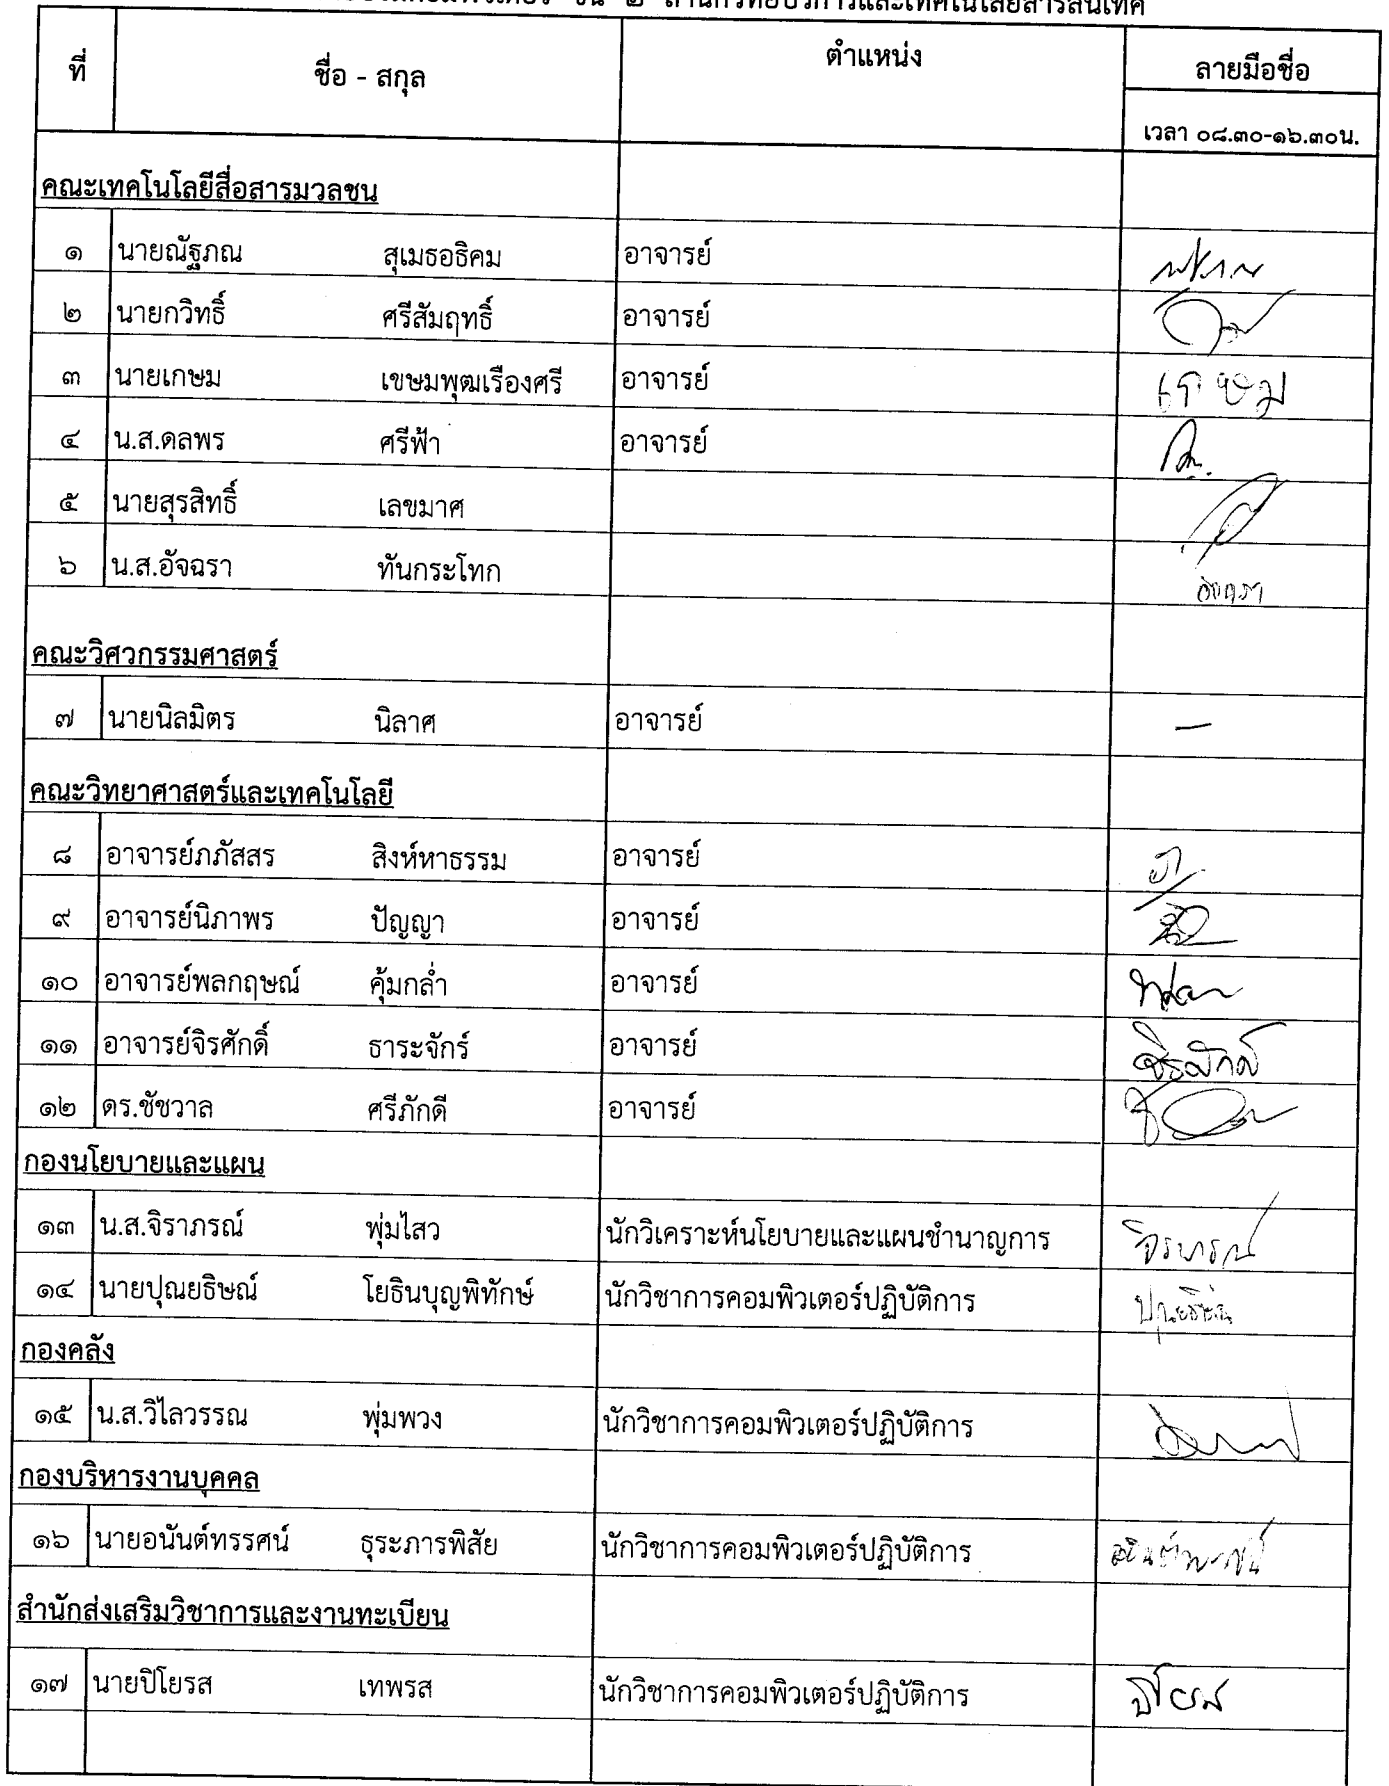 ชั้น ๒ สำนักวิทยบริการและเทคโนโลยีสารสนเทศ
ที่ ชื่อ - สกุล ตำแหน่ง ลายมือชื่อ
เวลา ๐๘.๓๐-๑๖.๓๐น.
คณะเทคโนโลยีสื่อสารมวลชน
๑ นายณัฐภณ สุเมธอธิคม อาจารย์
๒ นายกวิทธิ์ ศรีสัมฤทธิ์ อาจารย์
๓ นายเกษม เขษมพุฒเรืองศรี อาจารย์ เกษม
๔ น.ส.ดลพร ศรีฟ้า อาจารย์
๕ นายสุรสิทธิ์ เลขมาศ
๖ น.ส.อัจฉรา ทันกระโทก อัจฉรา
คณะวิศวกรรมศาสตร์
๗ นายนิลมิตร นิลาศ อาจารย์ –
คณะวิทยาศาสตร์และเทคโนโลยี
๘ อาจารย์ภภัสสร สิงห์หาธรรม อาจารย์
๙ อาจารย์นิภาพร ปัญญา อาจารย์
๑๐ อาจารย์พลกฤษณ์ คุ้มกล่ำ อาจารย์
๑๑ อาจารย์จิรศักดิ์ ธาระจักร์ อาจารย์ จิรศักดิ์
๑๒ ดร.ชัชวาล ศรีภักดี อาจารย์
กองนโยบายและแผน
๑๓ น.ส.จิราภรณ์ พุ่มไสว นักวิเคราะห์นโยบายและแผนชำนาญการ จิราภรณ์
๑๔ นายปุณยธิษณ์ โยธินบุญพิทักษ์ นักวิชาการคอมพิวเตอร์ปฏิบัติการ ปุณยธิษณ์
กองคลัง
๑๕ น.ส.วิไลวรรณ พุ่มพวง นักวิชาการคอมพิวเตอร์ปฏิบัติการ
กองบริหารงานบุคคล
๑๖ นายอนันต์ทรรศน์ ธุระภารพิสัย นักวิชาการคอมพิวเตอร์ปฏิบัติการ อนันต์ทรรศน์
สำนักส่งเสริมวิชาการและงานทะเบียน
๑๗ นายปิโยรส เทพรส นักวิชาการคอมพิวเตอร์ปฏิบัติการ ปิโยรส